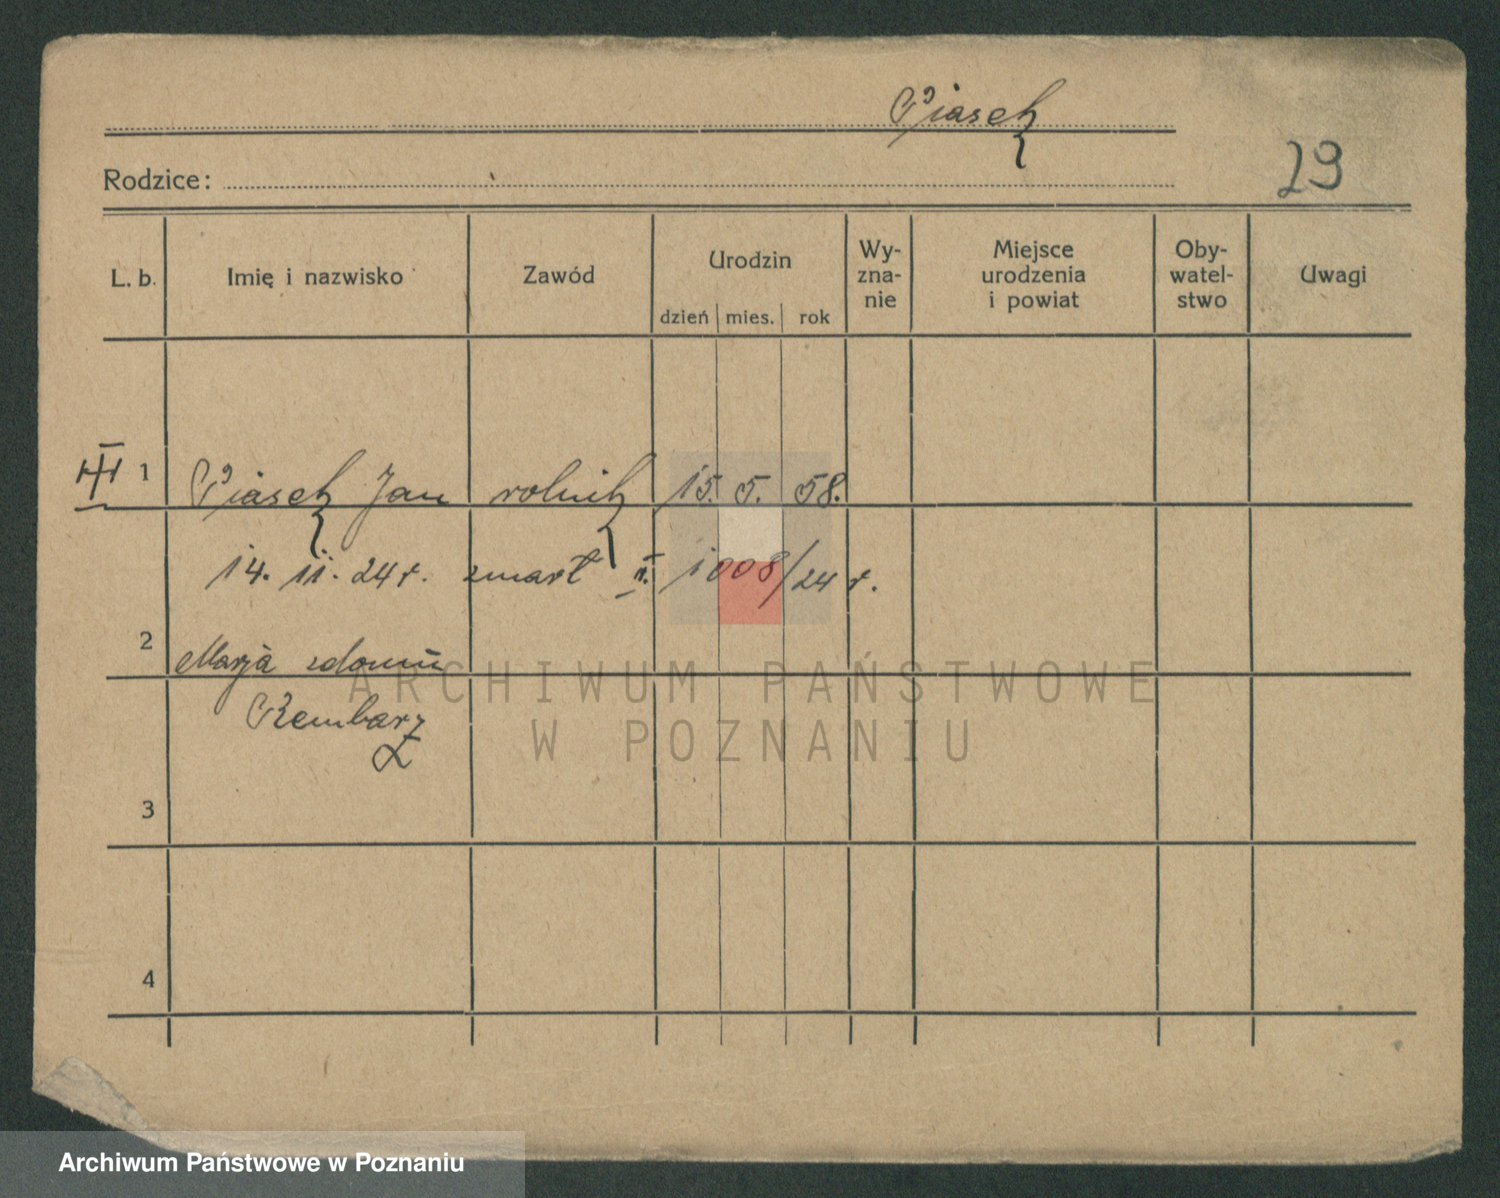 Piasek
29
Rodzice:
L. b. Imię i nazwisko Zawód Urodzin dzień mies. rok Wy-zna-nie Miejsce urodzenia i powiat Oby-watel-stwo Uwagi
1 Piasek Jan rolnik 15. 5. 58.
14. 11. 24 r. zmarł 1008/24 r.
2 Marja z domu
Rembarz
3
4
ARCHIWUM PAŃSTWOWE
W POZNANIU
Archiwum Państwowe w Poznaniu